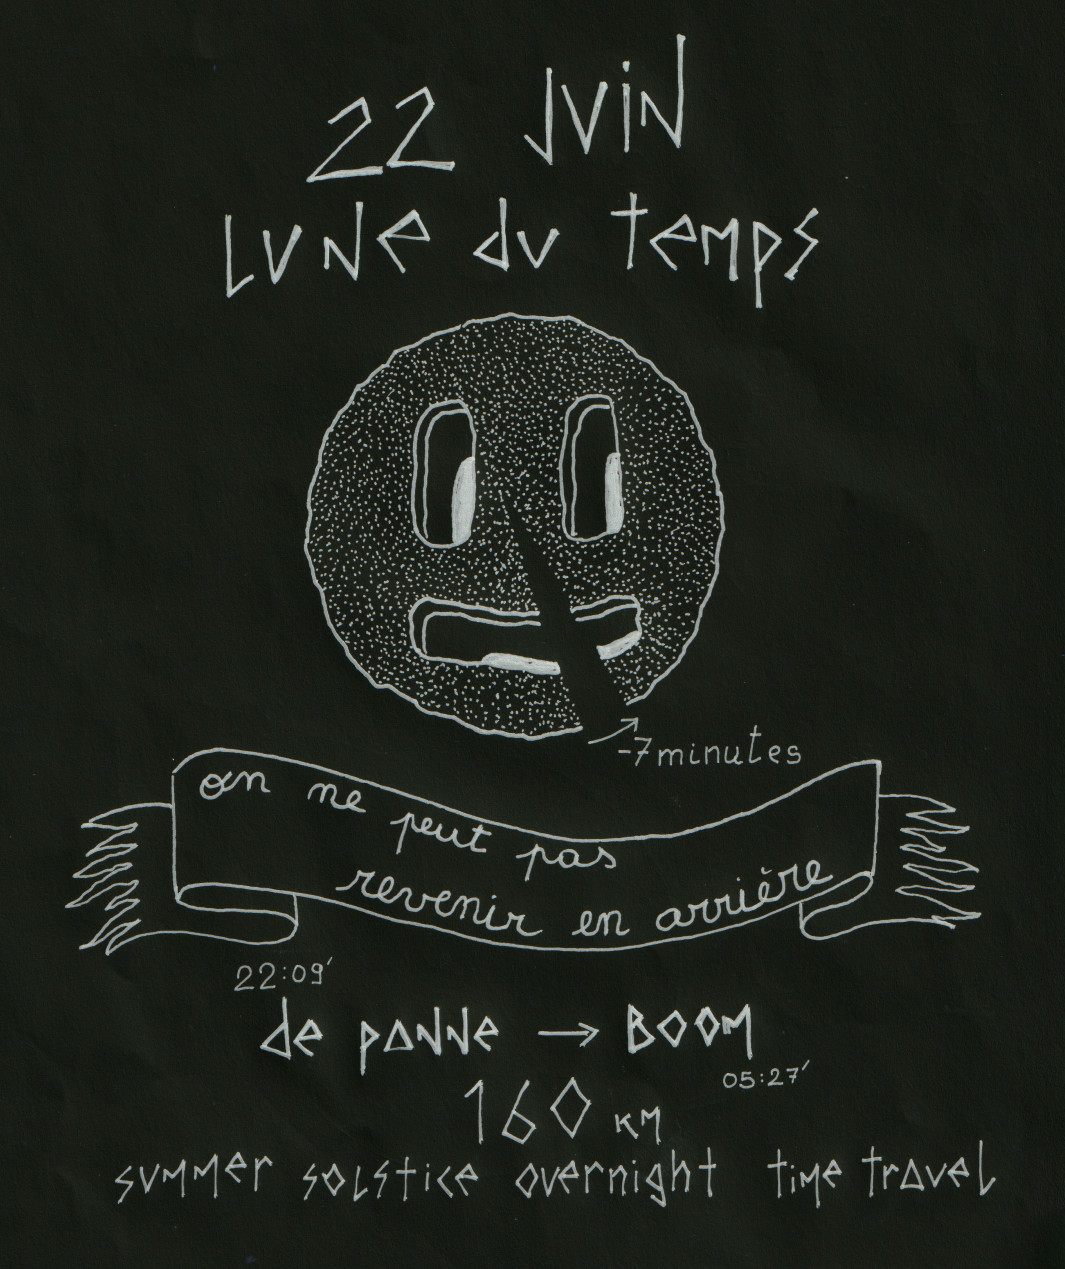 22 JUiN
LUNe du temps
-7minutes
on ne peut pas
revenir en arrière
22:09'
de panne → BOOM
05:27'
160 KM
summer solstice overnight time travel